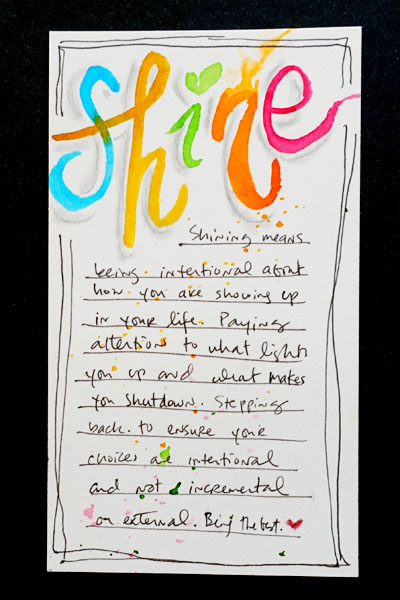 Shine
Shining means
being intentional about
how you are showing up
in your life. Paying
attention to what lights
you up and what makes
you shutdown. Stepping
back to ensure your
choices are intentional
and not incremental
or external. Being the best.